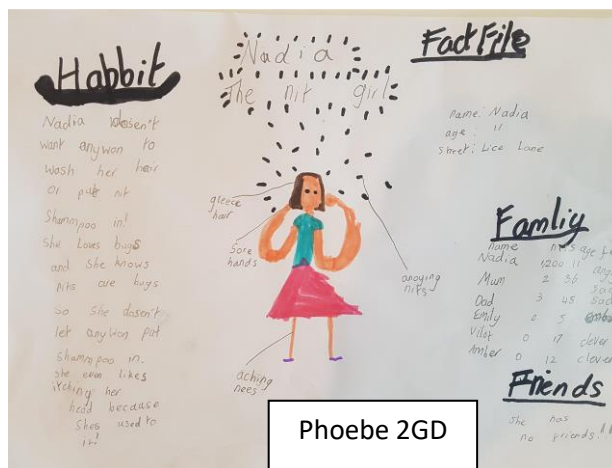 Habbit
Nadia doesn't
want anywon to
wash her heir
or put nit
Shammpoo in!
She Loves bugs
and she knows
nits are bugs
so she dosen't
let anywon put
shammpoo in.
she even likes
itching her
head because
Shes used to
it!
Nadia
The nit girl
gleece
hair
Sore
hands
anoying
nits
aching
nees
Fact File
name: Nadia
age: 11
street: Lice Lane
Famliy
name nits age
Nadia 1,200 11
Mum 2 36
Dad 3 45
Emily 5
17 clever
Amber 0 12 clever
Friends
She has
no friends!
Phoebe 2GD